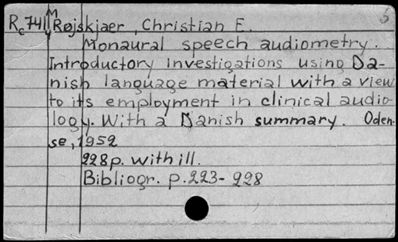 Rc741 M Røjskjaer, Christian E. 5
Monaural speech audiometry.
Introductory investigations using Da-
nish language material with a view
to its employment in clinical audio-
logy. With a Danish summary. Oden-
se, 1952
228p. with ill.
Bibliogr. p.223-228